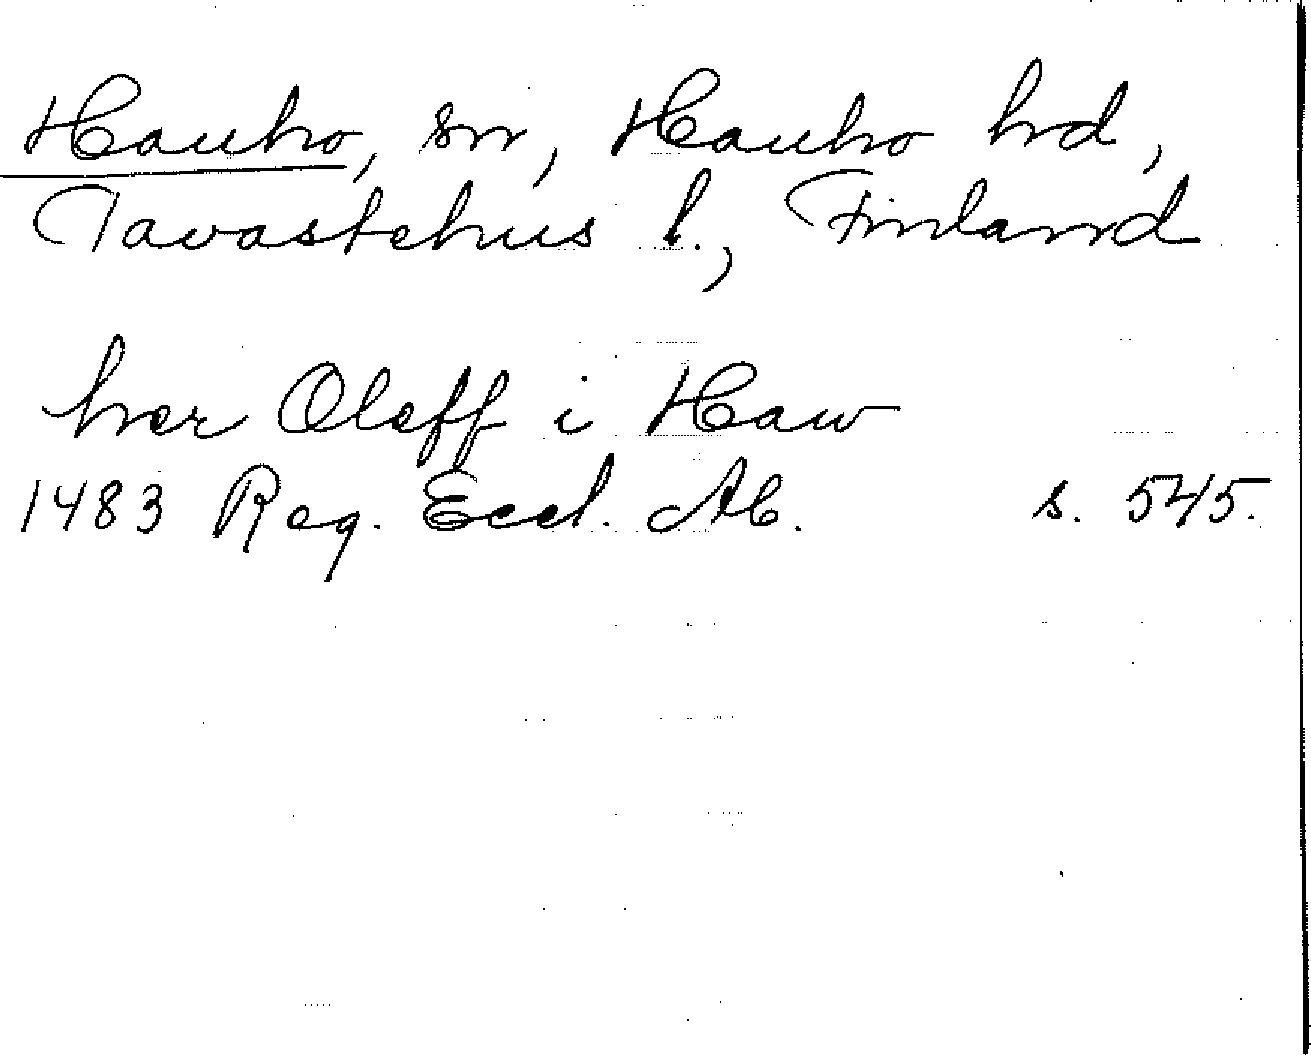 Hauho, sn, Hauho hrd,
Tavastehus l., Finland
her Oleff i Haw
1483 Reg. Eccl. Ab. s. 545.